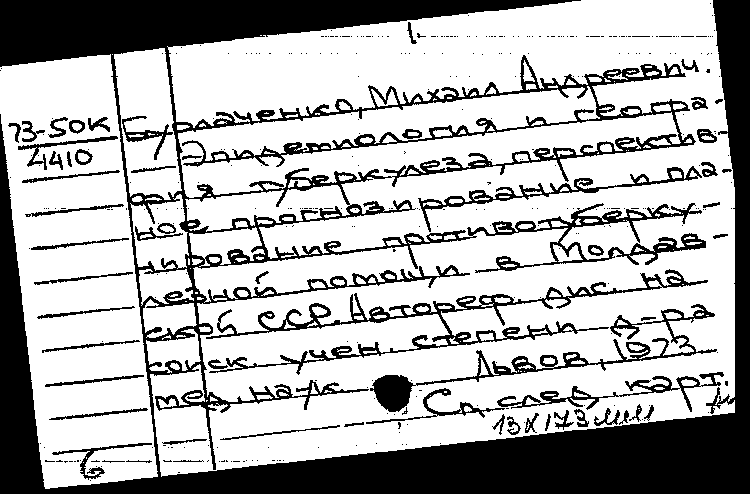 1.
73-50К Бурлаченко, Михаил Андреевич.
4410 Эпидемиология и геогра-
фия туберкулеза, перспектив-
ное прогнозирование и пла-
нирование противотуберку-
лезной помощи в Молдав-
ской ССР. Автореф. дис. на
соиск. учен. степени д-ра
мед. наук. Львов, 1973
См. след. карт.
13 X 173
6